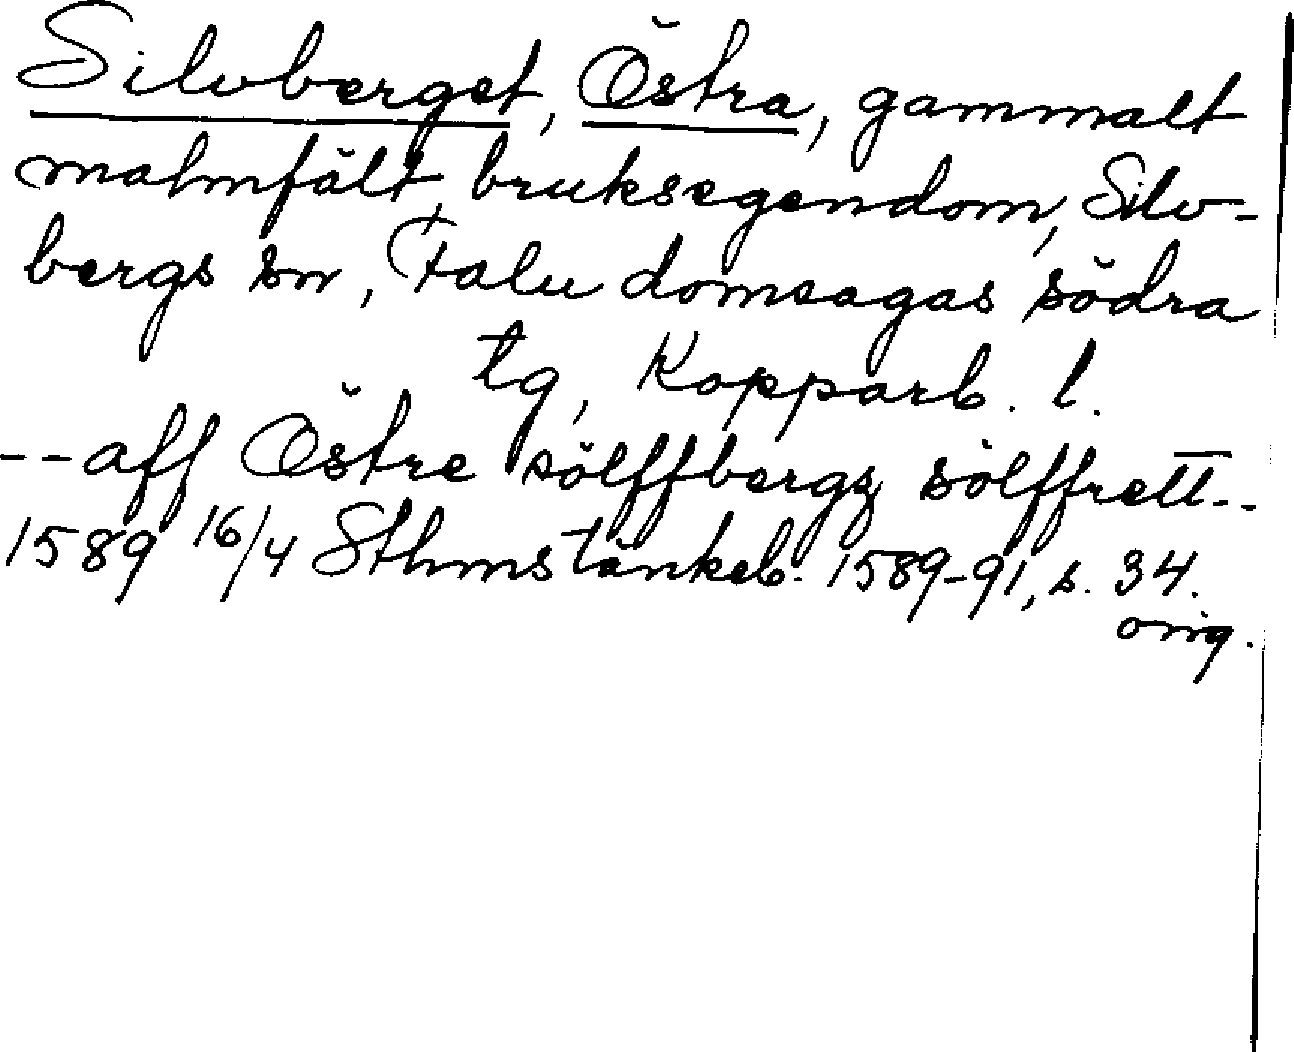 Silvberget, Östra, gammalt
malmfält, bruksegendom, Silv-
bergs sn, Falu domsagas södra
tg, Kopparb. l.
-- aff Östre sölffbergz sölffrett --
1589 16/4 Sthms tänkeb. 1589-91, s. 34.
orig.